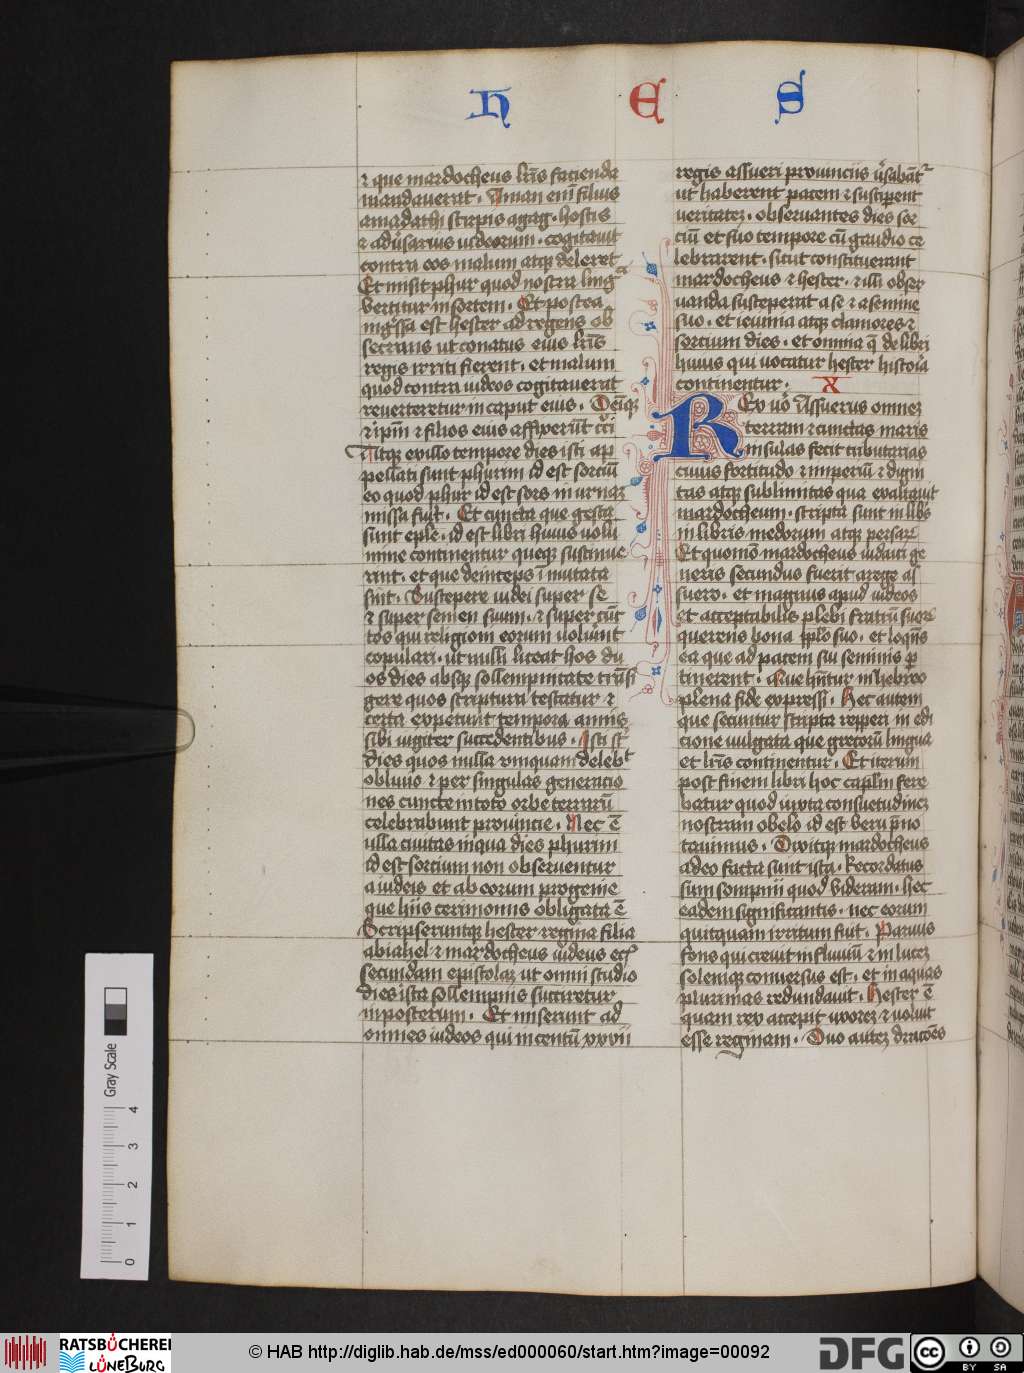 h E S
⁊ que mardocheus lr̄is facienda
mandauerat . Aman em̄ filius
amadathi stirpis agag . hostis
⁊ adūsarius iudeorum . cogitauit
contra eos malum atqꝫ deleret
Et misit phur quod nostra lingᵃ
vertitur in sortem . Et postea
ingͥssa est hester ad regem ob
secrans ut conatus eius lr̄is
regis irriti fierent . et malum
quod contra iudeos cogitauerat
reuerteretur in caput eius . Deīqꝫ
⁊ ip̄m ⁊ filios eius affixerūt cͥci
Atqꝫ ex illo tempore dies isti ap
pellati sunt phurim id est sorciū
eo quod phur id est sors in urnaꝫ
missa fuit . Et cuncta que gesta
sunt ep̄le . id est libri huius uolu
mine continentur queqꝫ sustinue
rint . et que deinceps ī mutata
sint . Suscepere iudei super se
⁊ super semen suum . ⁊ super cūc
tos qui religioni eorum uoluīnt
copulari . ut nulli liceat hos du
os dies absqꝫ sollempnitate trāsi
gere quos scriptura testatur ⁊
certa expetunt tempora annis
sibi iugiter succedentibus . Isti st̄
dies quos nulla vmquam delebᵗ
obliuio ⁊ per singulas generacio
nes cuncte in toto orbe terrarū
celebrabunt prouincie . Nec ē
ulla ciuitas in qua dies phurim
id est sortium non obseruentur
a iudeis et ab eorum progenie
que hiis cerimoniis obligata ē
Scripseruntqꝫ hester regina filia
abiahel ⁊ mardocheus iudeus ecͥ
secundam epistolaꝫ ut omni studio
dies ista sollempnis sanciretur
in posterum . Et miserunt ad
omnes iudeos qui in centū xxvii
regis assueri prouinciis ūsabātᵘʳ
ut haberent pacem ⁊ susciperent
veritateꝫ . obseruantes dies sor
ciū et suo tempore cū gaudio ce
lebrarent . sicut constituerant
mardocheus ⁊ hester . ⁊ illi obser
uanda susceperāt a se ⁊ a semine
suo . et ieiunia atqꝫ clamores ⁊
sortium dies . et omnia q̄ de libri
huius qui uocatur hester historia
continentur . X
Rex uº Assuerus omneꝫ
terram ⁊ cunctas maris
insulas fecit tributarias
cuius fortitudo ⁊ imperiū ⁊ digni
tas atqꝫ sublimitas qua exaltauit
mardocheum . scripta sunt in libͥs
in libris medorum atqꝫ persarꝫ
Et quomō mardocheus iudaici ge
neris secundus fuerit a rege as
suero . et magnus apud iudeos
et acceptabilis plebi fratrū suorꝫ
querens bona pp̄lo suo . et loquēs
ea que ad pacem sui seminis p̄
tinerent . Que hn̄tur in hebreo
plena fide expressi . Hec autem
que secuntur scripta repperi in edi
cione uulgata que grecorū lingua
et lr̄is continentur . Et iterum
post finem libri hoc capl̄m fere
batur quod iuxta consuetudineꝫ
nostram obelo id est veru p̄no
tauimus . Dixitqꝫ mardocheus
a deo facta sunt ista . Recordatus
sum sompnii quod videram . hec
eadem significantis . nec eorum
quitquam irritum fuit . Paruus
fons qui creuit in fluuiū ⁊ in luceꝫ
solemqꝫ conuersus est . et in aquas
plurimas redundauit . Hester ē
quam rex accepit uxoreꝫ ⁊ uoluit
esse reginam . Duo auteꝫ dracōes
Gray Scale
0 1 2 3 4
RATSBÜCHEREI
LÜNEBURG
© HAB http://diglib.hab.de/mss/ed000060/start.htm?image=00092
DFG
cc BY SA